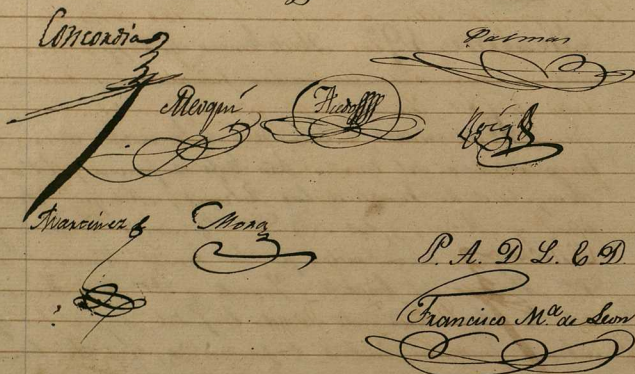 Concordia
Palmas
Meoqui
Acedo
Roig
Martinez
Mora
P. A. D L. E D.
Francisco M.ª de Leon